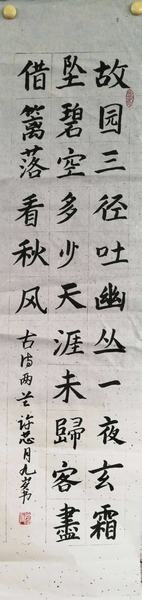 故园三径吐幽丛一夜玄霜
坠碧空多少天涯未歸客盡
借篱落看秋风
古诗两首 许芯月九岁书